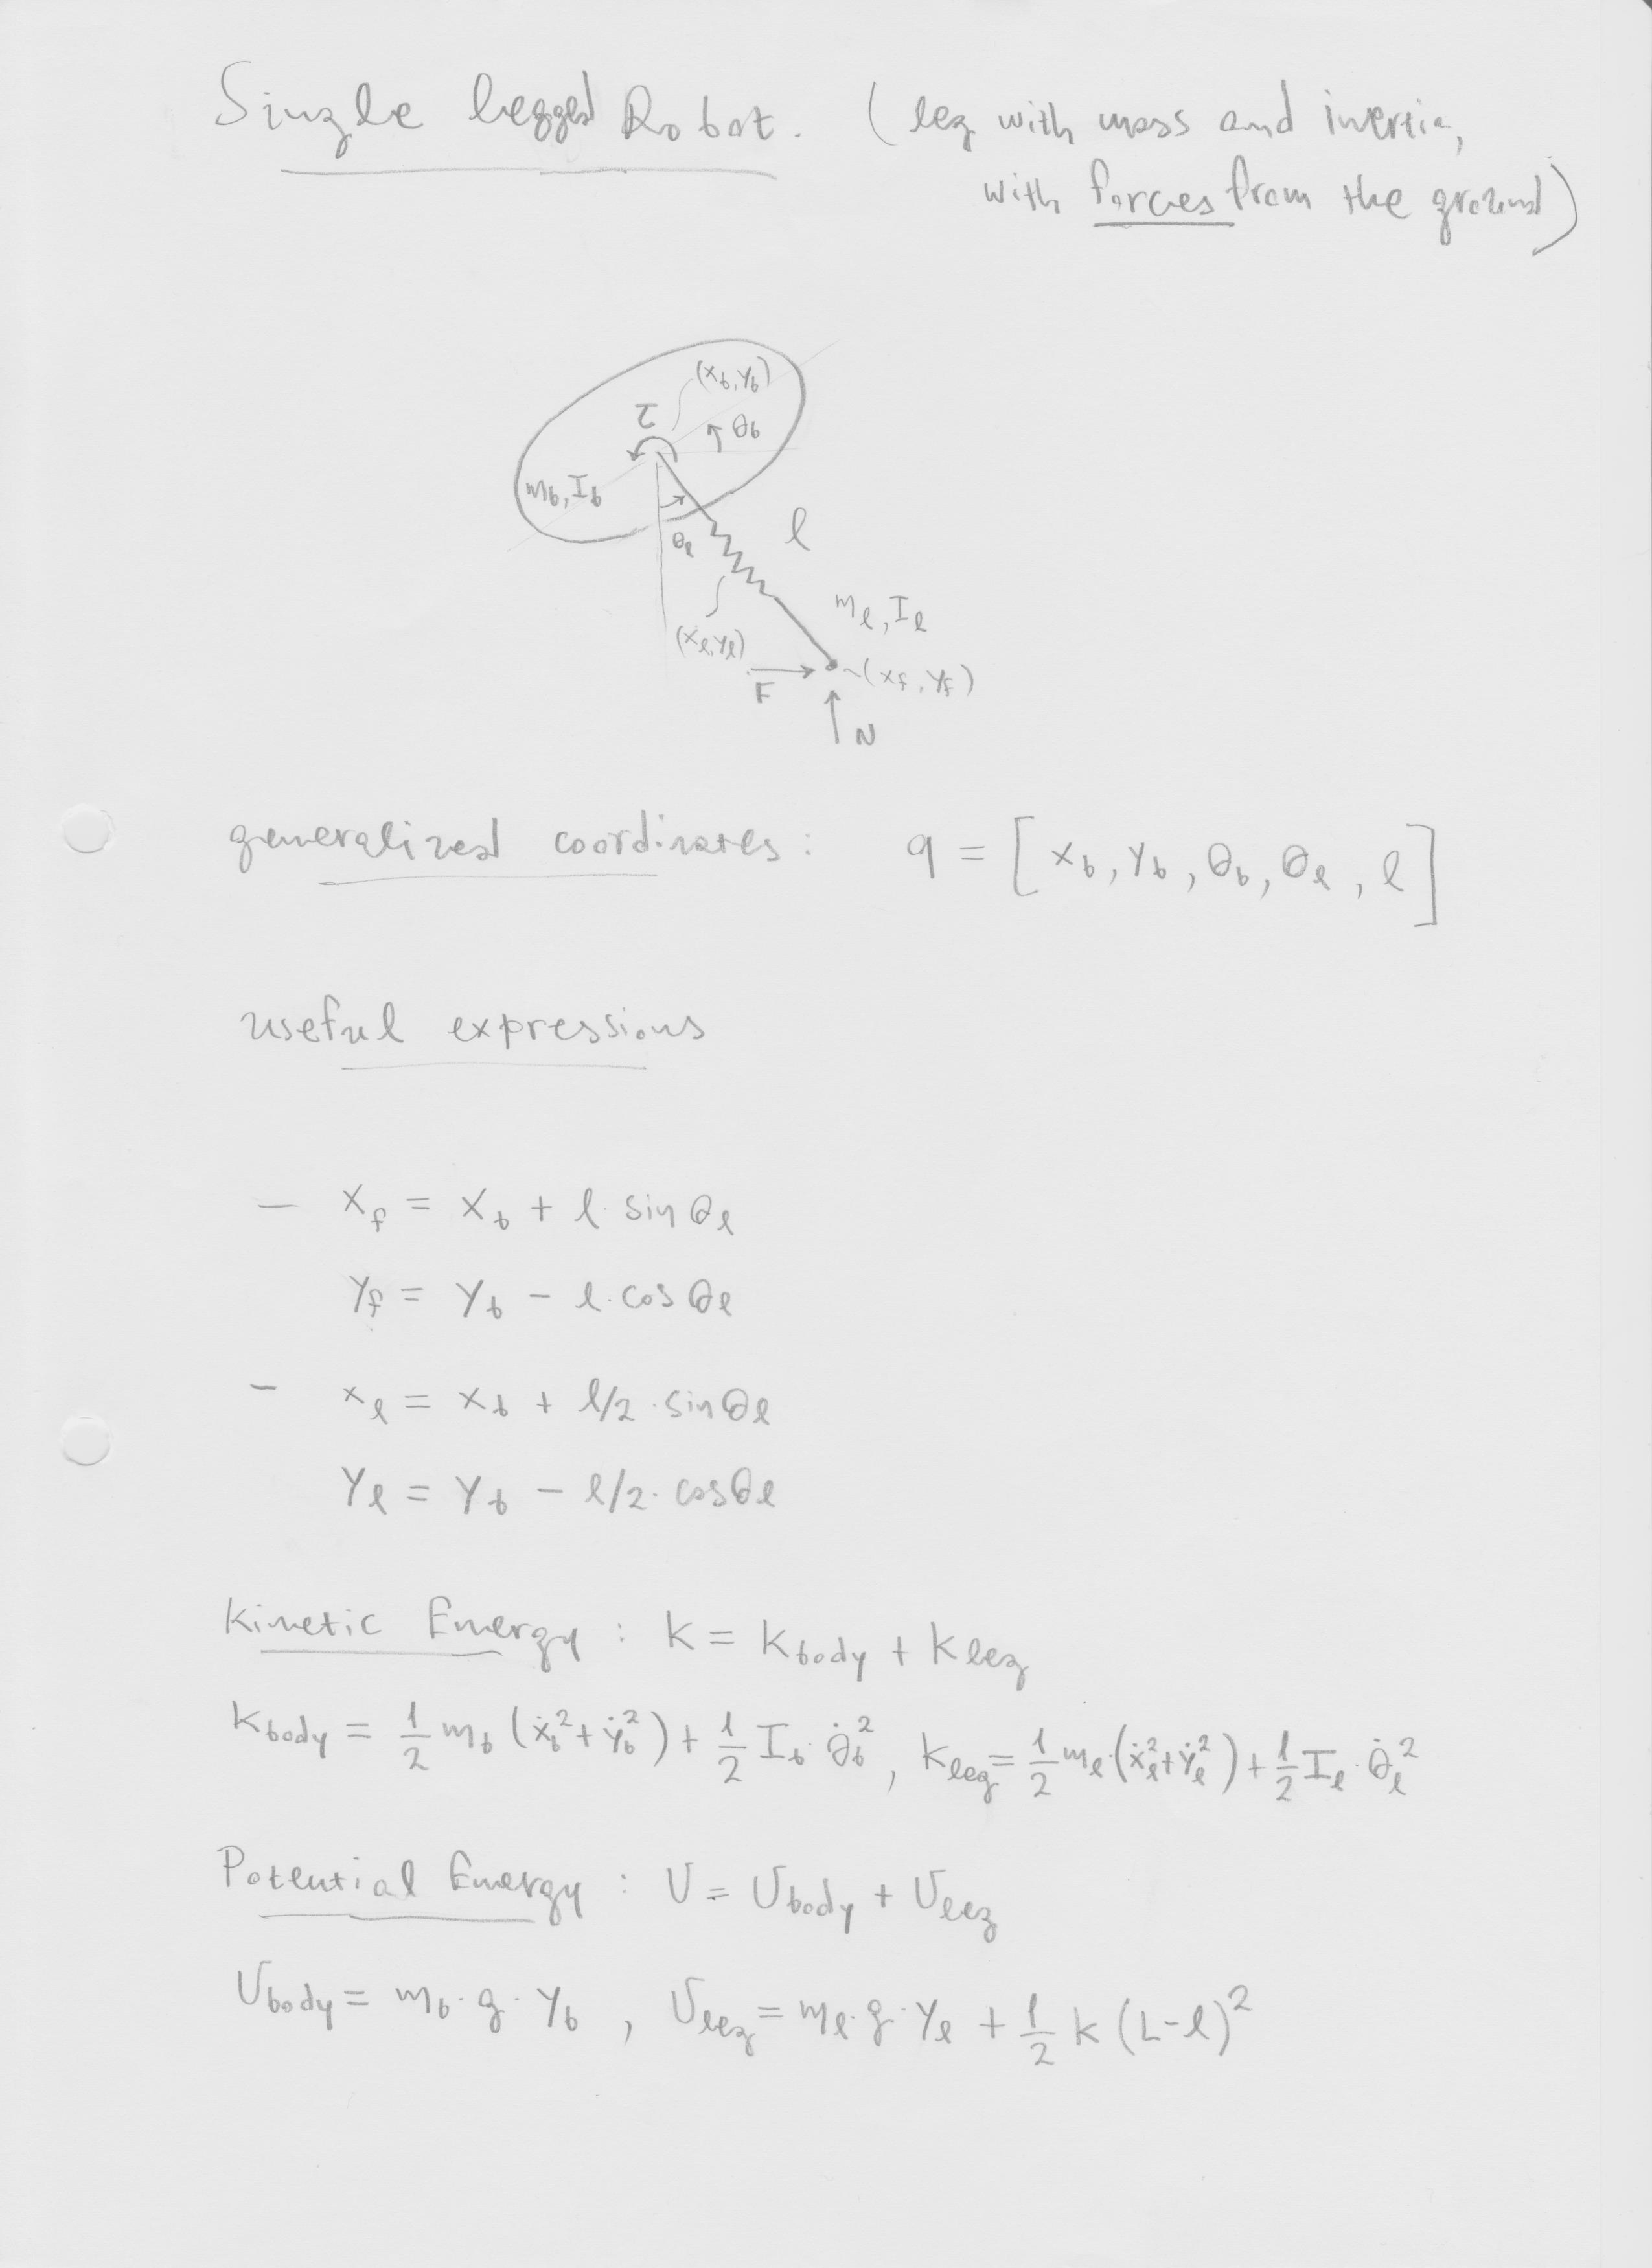 Single legged Robot. (leg with mass and inertia,
with forces from the ground)
(x_b, y_b)
τ
θ_b
m_b, I_b
θ_ℓ
ℓ
m_ℓ, I_ℓ
(x_ℓ, y_ℓ)
F
(x_f, y_f)
N
generalized coordinates: q = [x_b, y_b, θ_b, θ_ℓ, ℓ]
useful expressions
— x_f = x_b + ℓ · sin θ_ℓ
y_f = y_b - ℓ · cos θ_ℓ
- x_ℓ = x_b + ℓ/2 · sin θ_ℓ
y_ℓ = y_b - ℓ/2 · cos θ_ℓ
Kinetic Energy : K = K_body + K_leg
K_body = 1/2 m_b (ẋ_b² + ẏ_b²) + 1/2 I_b · θ̇_b², K_leg = 1/2 m_ℓ · (ẋ_ℓ² + ẏ_ℓ²) + 1/2 I_ℓ · θ̇_ℓ²
Potential Energy : U = U_body + U_leg
U_body = m_b · g · y_b, U_leg = m_ℓ · g · y_ℓ + 1/2 k (L-ℓ)²